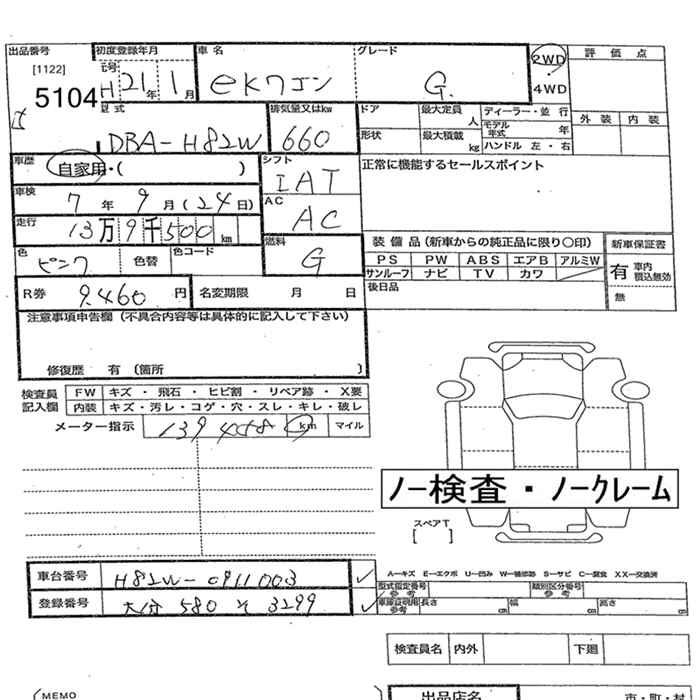 出品番号 初度登録年月 車名 グレード 2WD 評価点
[1122] H 21年 1月 eKワゴン G. 4WD
5104 型式 排気量又はkw ドア 最大定員 人 ディーラー・並行 外装 内装
DBA-H82W 660 形状 最大積載 kg モデル年式 年
ハンドル 左・右
車歴 自家用・( ) シフト IAT 正常に機能するセールスポイント
車検 7年 9月 (24日) AC AC
走行 13万9千500km
色 ピンク 色替 色コード 燃料 G 装備品 (新車からの純正品に限り○印) 新車保証書
PS PW ABS エアB アルミW 有 車内積込無効
サンルーフ ナビ TV カワ
R券 9,460円 名変期限 月 日 後日品 無
注意事項申告欄 (不具合内容等は具体的に記入して下さい)
修復歴 有 (箇所 )
検査員記入欄 FW キズ・飛石・ヒビ割・リペア跡・X要
内装 キズ・汚レ・コゲ・穴・スレ・キレ・破レ
メーター指示 139458 km マイル
ノー検査・ノークレーム
スペアT
[ ]
車台番号 H82W-0911003 ✓ A―キズ E―エクボ U―凹み W―補修跡 S―サビ C―腐食 XX―交換済
型式指定番号 参考 類別区分番号 参考
登録番号 大分 580 そ 3299 ✓ 車庫証明用参考 長さ cm 幅 cm 高さ cm
検査員名 内外 下廻
(MEMO 出品店名 市・町・村